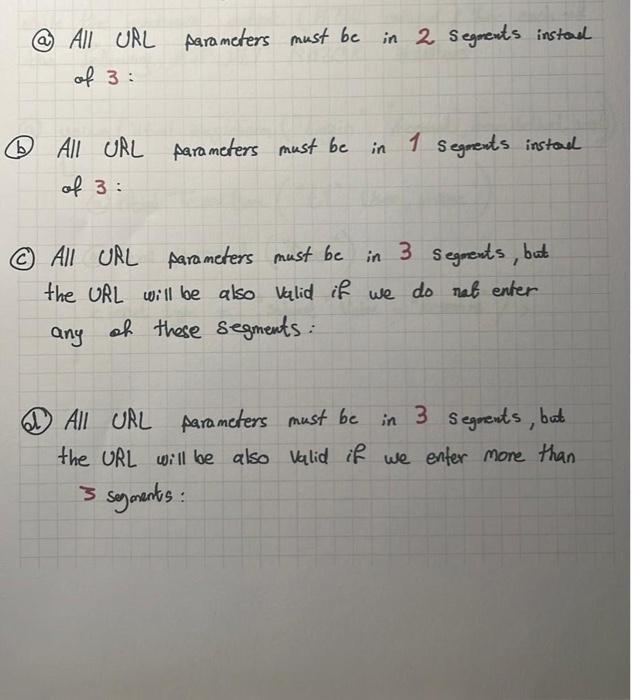 (a) All URL parameters must be in 2 segments instead
of 3 :
(b) All URL parameters must be in 1 segments instead
of 3 :
(c) All URL parameters must be in 3 segments, but
the URL will be also Valid if we do not enter
any of these segments :
(d) All URL parameters must be in 3 segments, but
the URL will be also Valid if we enter more than
3 segments :